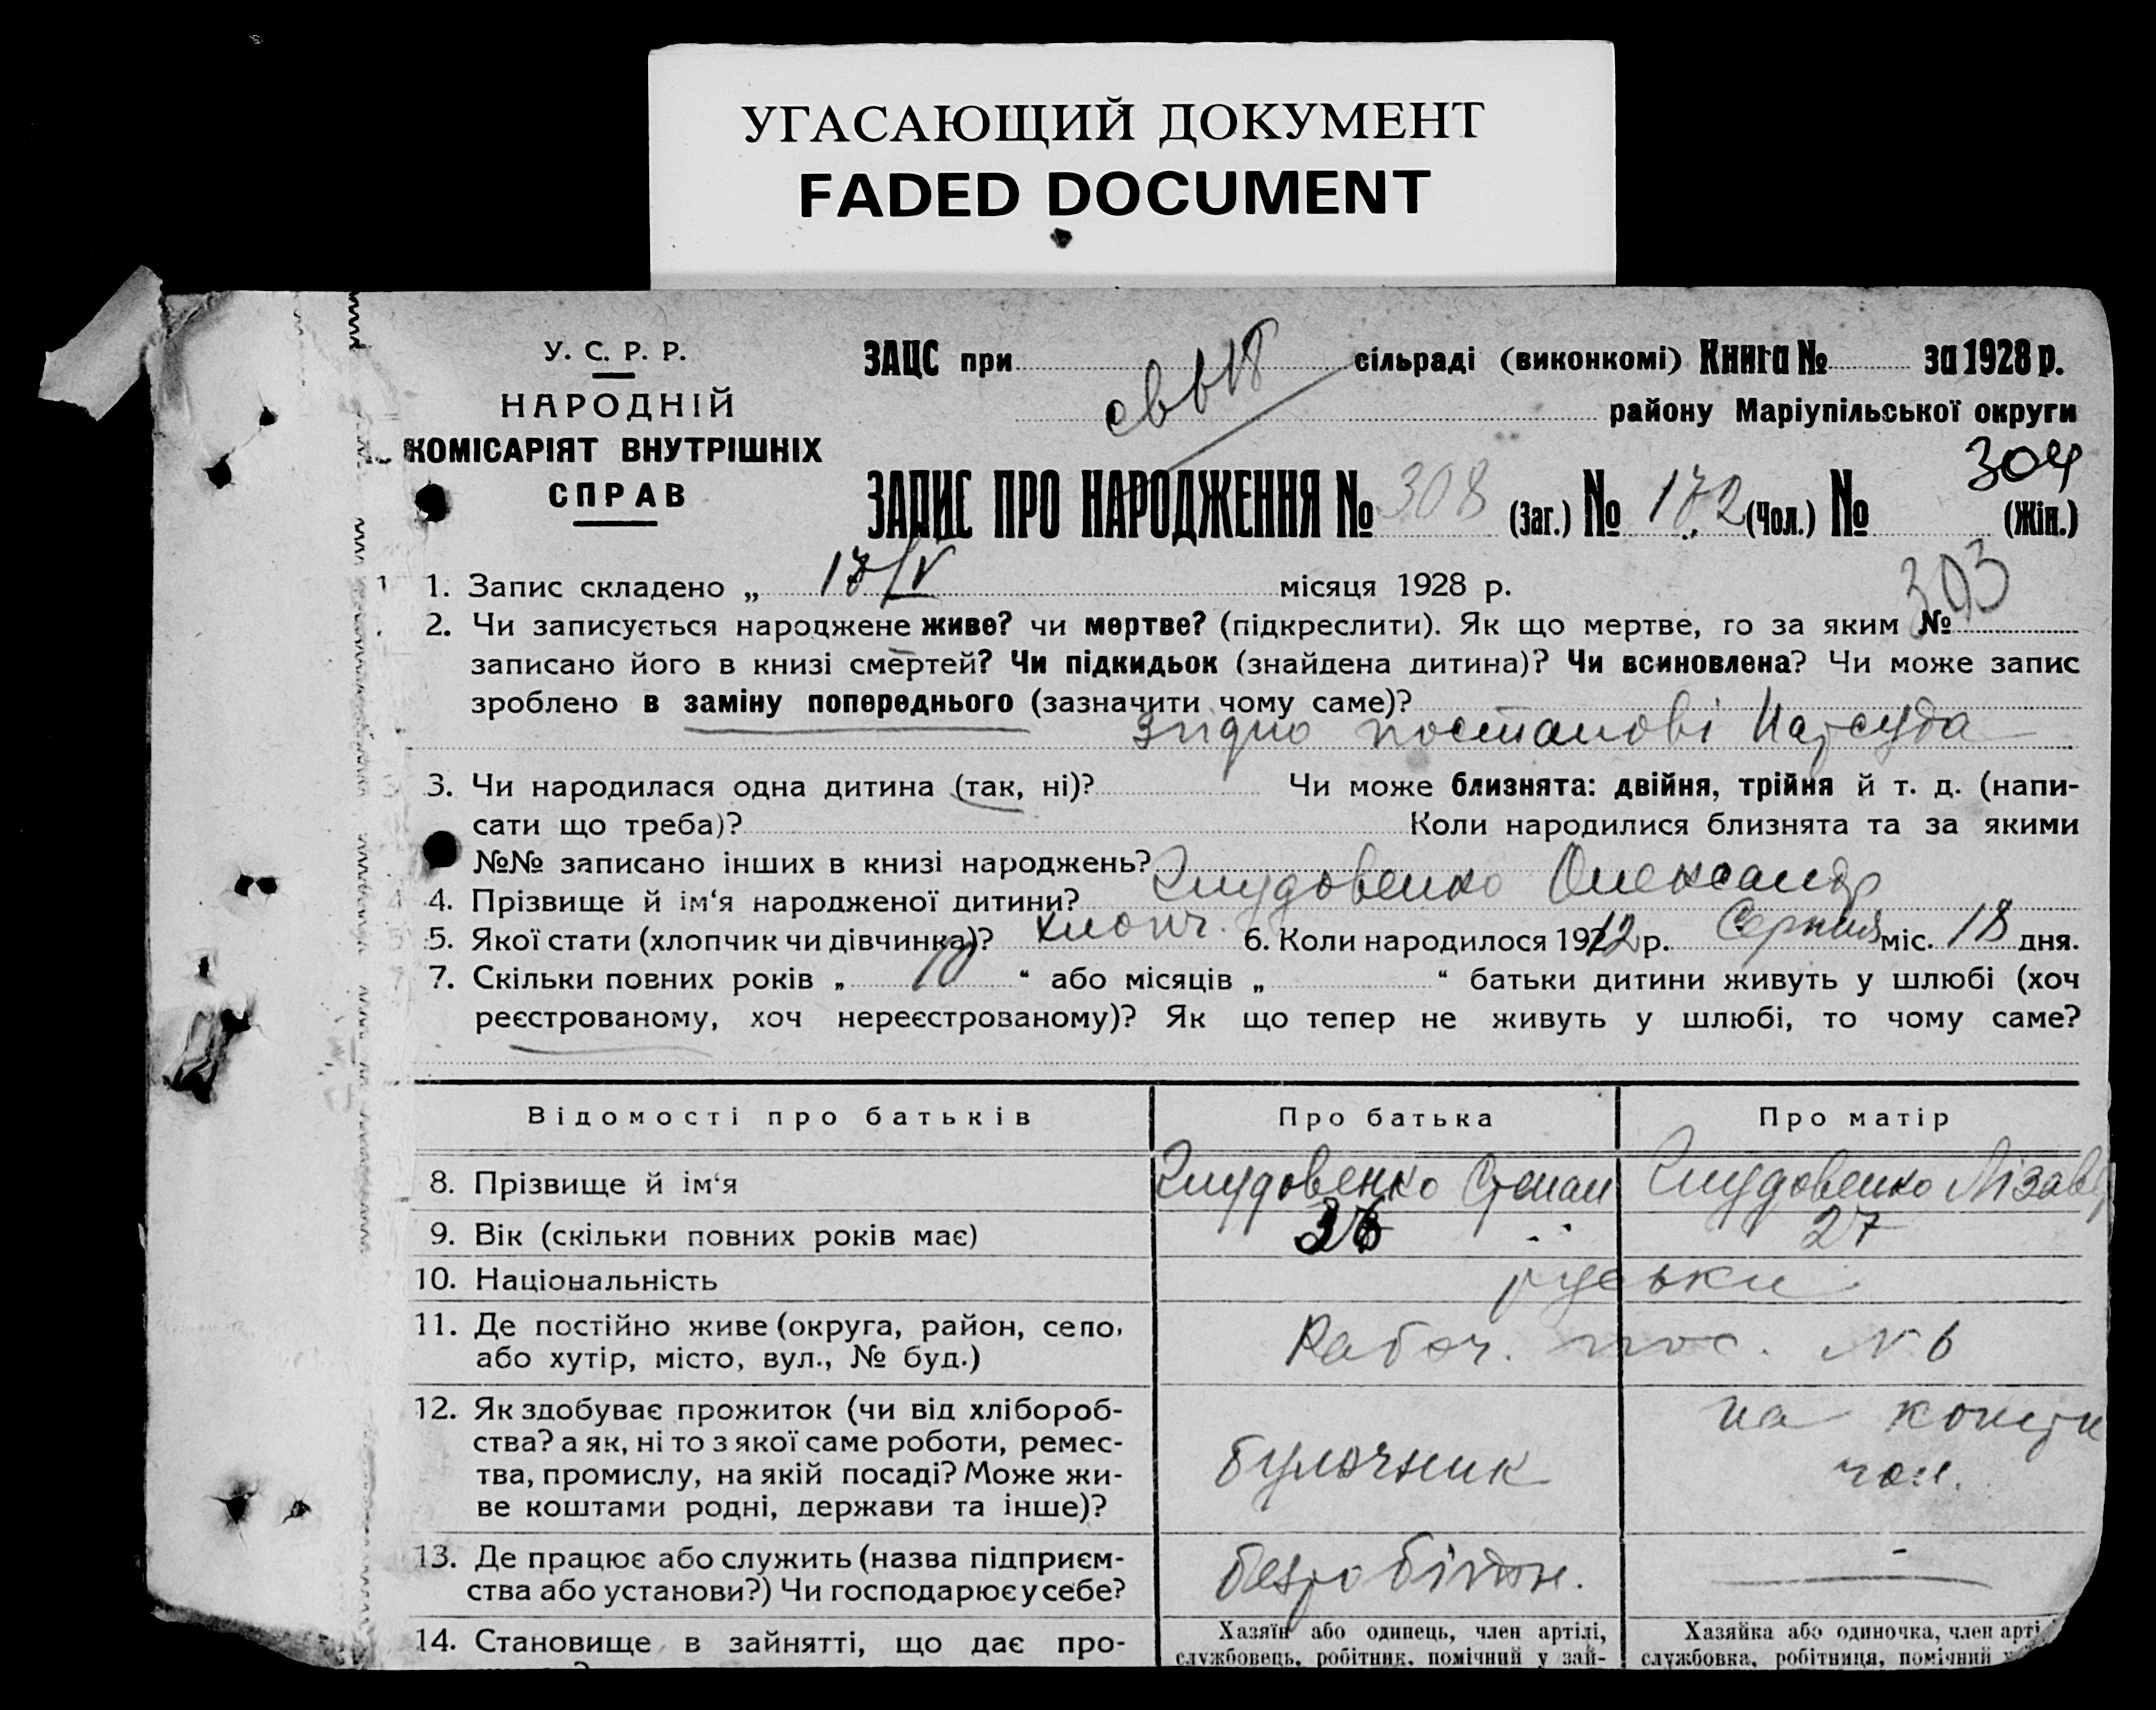 УГАСАЮЩИЙ ДОКУМЕНТ
FADED DOCUMENT
У. С. Р. Р.
НАРОДНІЙ
КОМІСАРІЯТ ВНУТРІШНІХ
СПРАВ
ЗАЦС при сільраді (виконкомі) Книга № за 1928 р.
району Маріупільської округи
304
ЗАПИС ПРО НАРОДЖЕННЯ № 308 (Заг.) № 172 (Чол.) № (Жін.)
303
1. Запис складено „ 17/IV місяця 1928 р.
2. Чи записується народжене живе? чи мертве? (підкреслити). Як що мертве, то за яким №
записано його в книзі смертей? Чи підкидьок (знайдена дитина)? Чи всиновлена? Чи може запис
зроблено в заміну попереднього (зазначити чому саме)?
Згідно постанові Нарсуда
3. Чи народилася одна дитина (так, ні)? Чи може близнята: двійня, трійня й т. д. (напи-
сати що треба)? Коли народилися близнята та за якими
№№ записано інших в книзі народжень?
4. Прізвище й ім'я народженої дитини? Олександр
5. Якої стати (хлопчик чи дівчинка)? хлопч. 6. Коли народилося 1912 р. Серпня міс. 18 дня.
7. Скільки повних років „ 10 “ або місяців „ “ батьки дитини живуть у шлюбі (хоч
реєстрованому, хоч нереєстрованому)? Як що тепер не живуть у шлюбі, то чому саме?
Відомості про батьків Про батька Про матір
8. Прізвище й ім'я Степан
9. Вік (скільки повних років має) 36 27
10. Національність руськи
11. Де постійно живе (округа, район, село,
або хутір, місто, вул., № буд.) Рабоч. пос. № 6
12. Як здобуває прожиток (чи від хлібороб-
ства? а як, ні то з якої саме роботи, ремес-
тва, промислу, на якій посаді? Може жи-
ве коштами родні, держави та інше)?
булочник на кошти
чол.
13. Де працює або служить (назва підприєм-
ства або установи?) Чи господарює у себе? безробітн. —
14. Становище в зайнятті, що дає про-
Хазяїн або одинець, член артілі,
службовець, робітник, помічний у зай-
Хазяйка або одиночка, член арті
службовка, робітниця, помічний у